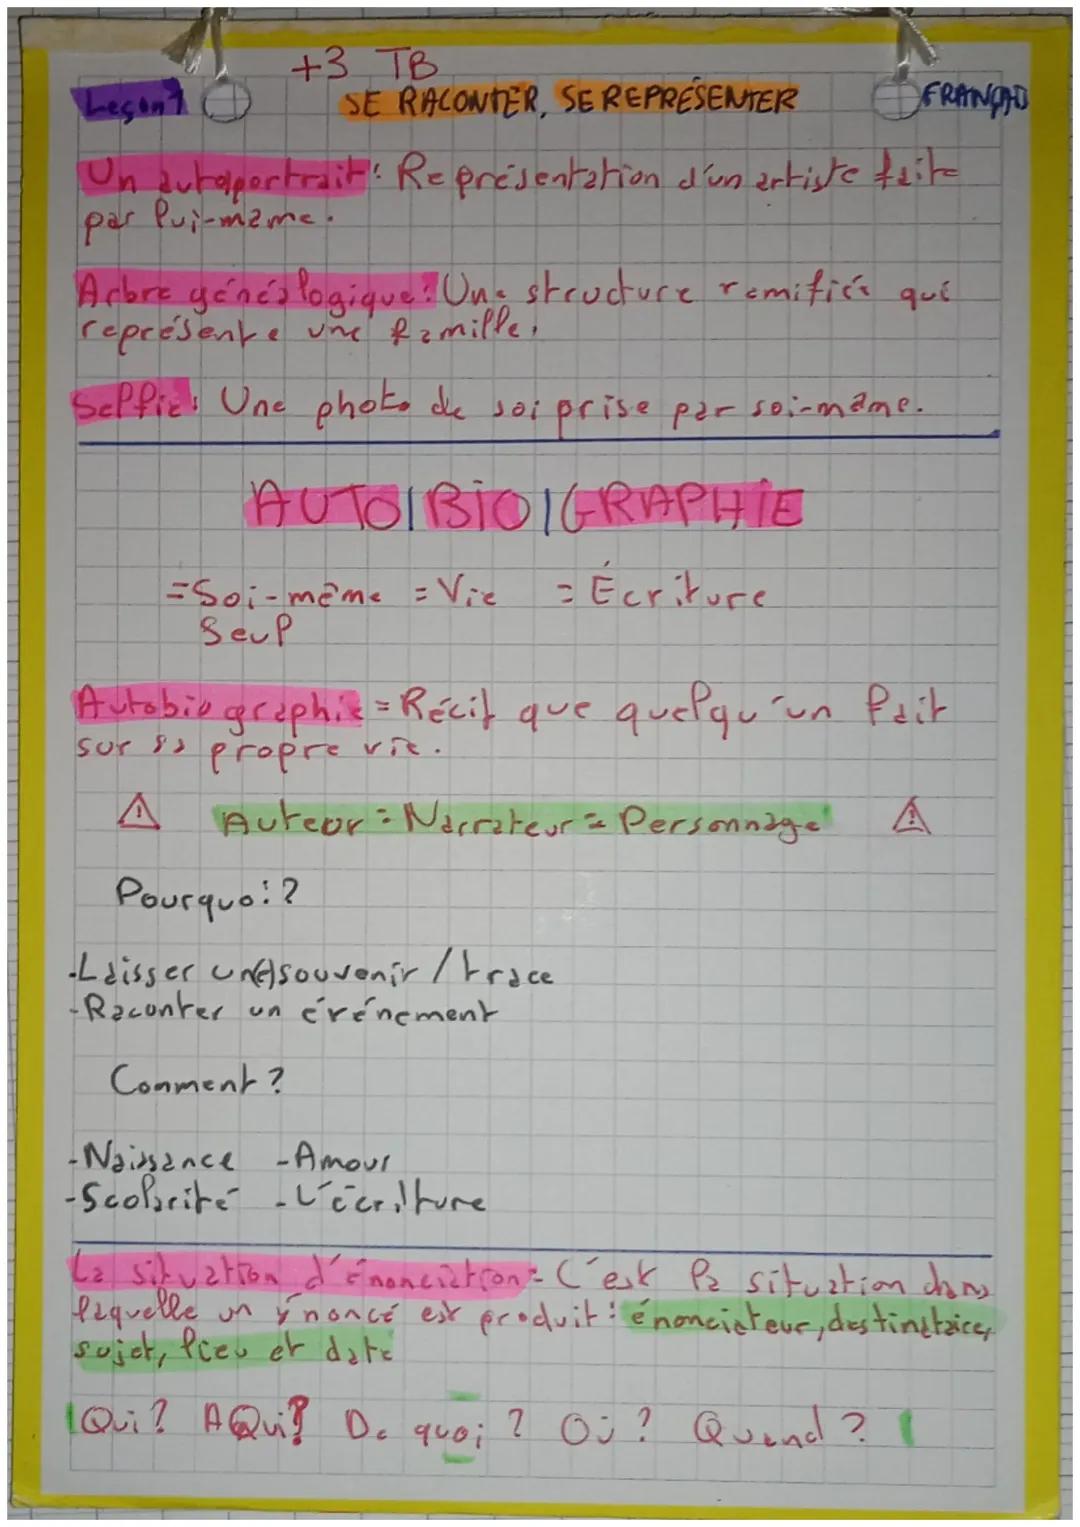 +3 TB
Leçon 1 SE RACONTER, SE REPRÉSENTER FRANÇAIS
Un autoportrait : Représentation d'un artiste faite
par lui-même.
Arbre généalogique : Une structure ramifiée qui
représente une famille.
Selfie : Une photo de soi prise par soi-même.
AUTO|BIO|GRAPHIE
=Soi-même =Vie = Écriture
Seul
Autobiographie = Récit que quelqu'un fait
sur sa propre vie.
⚠ Auteur = Narrateur = Personnage ⚠
Pourquoi ?
-Laisser un(e) souvenir / trace
-Raconter un événement
Comment ?
-Naissance -Amour
-Scolarité -L'écriture
La situation d'énonciation = C'est la situation dans
laquelle un énoncé est produit : énonciateur, destinataire,
sujet, lieu et date
Qui ? A Qui ? De quoi ? Où ? Quand ?